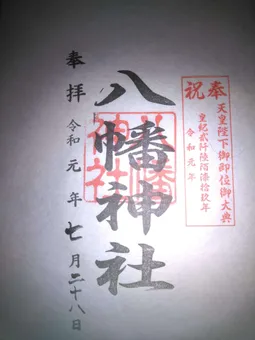 奉祝
天皇陛下御即位御大典
皇紀貳阡陸陌漆拾玖年
令和元年
八幡神社
八幡神社
奉拝
令和元年七月二十八日